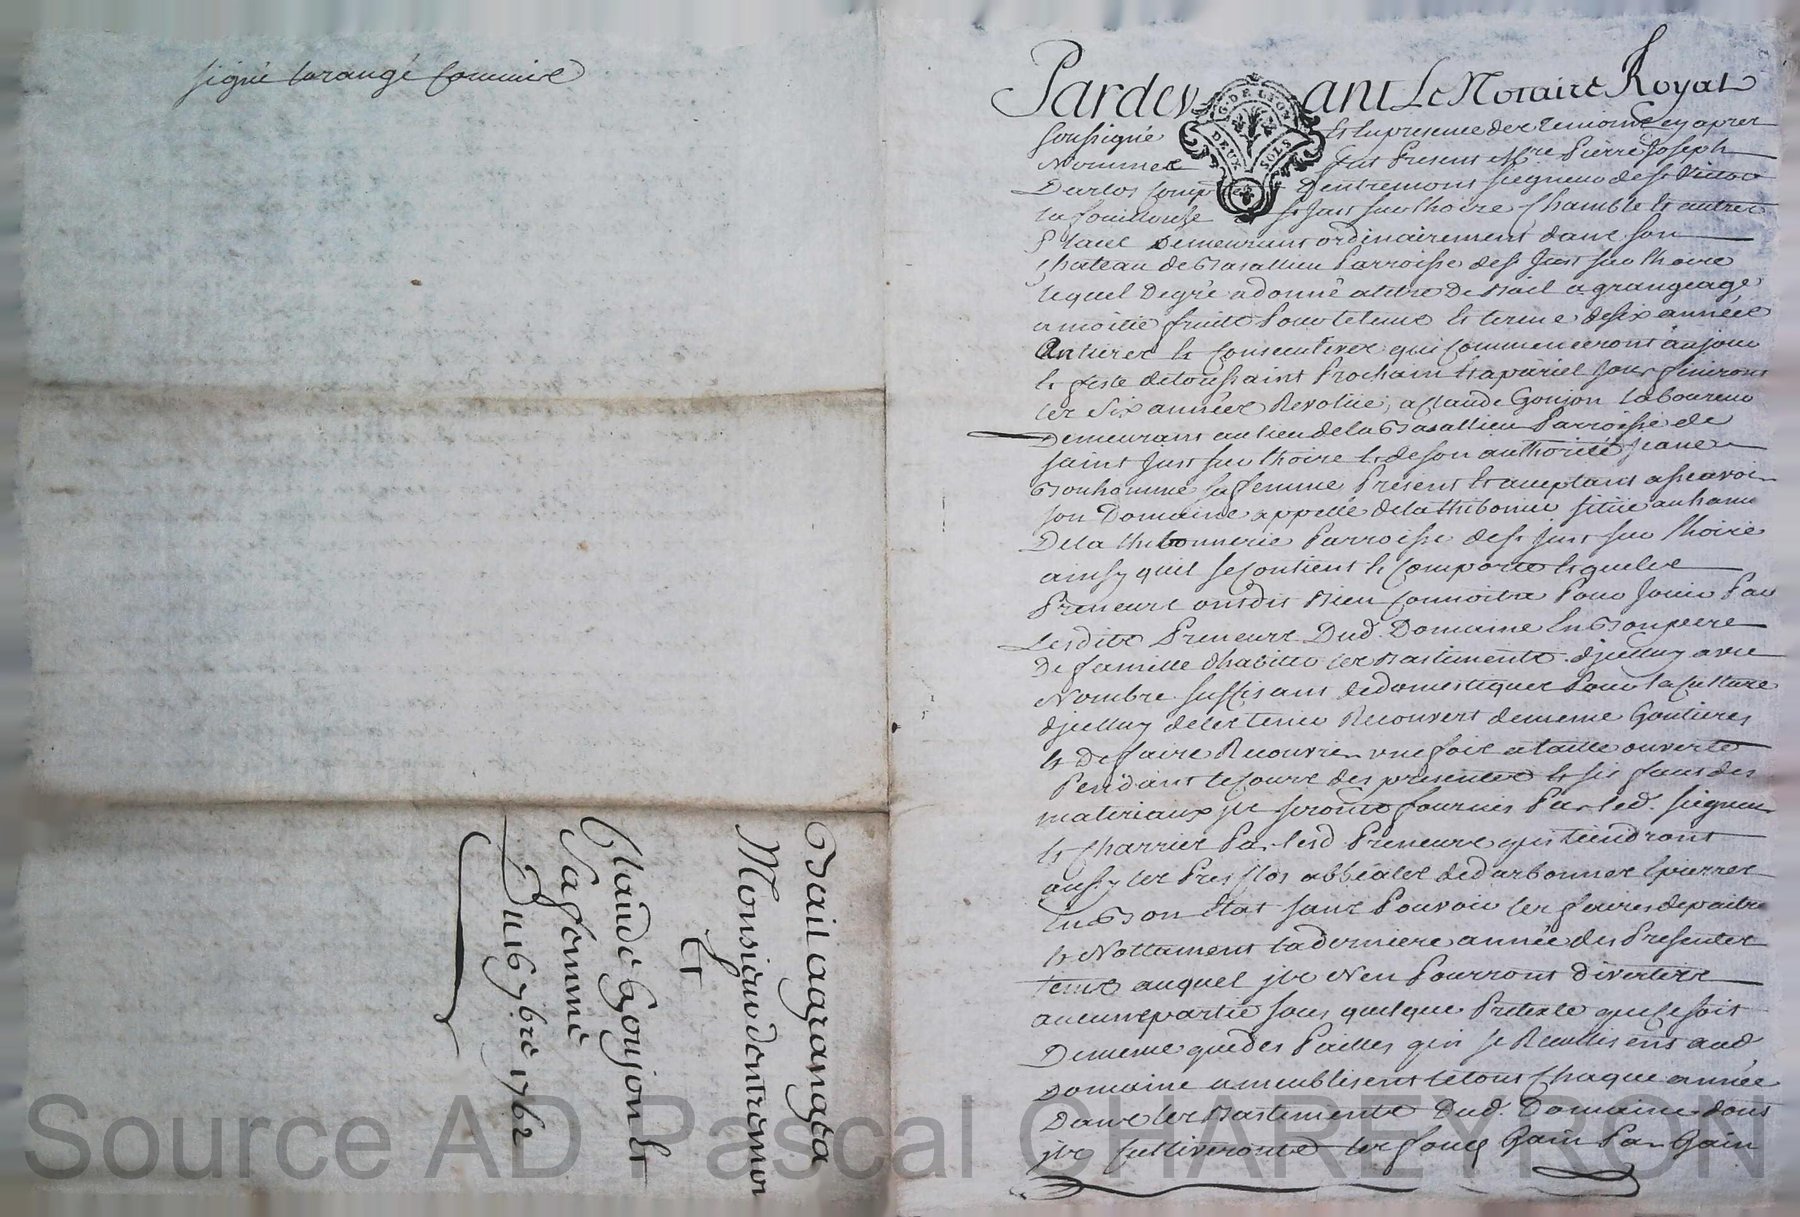 signé Lorangé Commise
Bail a grangea
Monsieur dentremon
Et
Claude Goujon Et
Sa femme
Du 16 7bre 1762
Pardevant Le Notaire Royal
G. DE LYON
DEUX SOLS
soussigné Et En presence des temoins cy apres
Nommés fut Present Mre. Pierre Joseph
Darlos Comte Dentremont seigneur de St Victor
la fouillouse St Just sur Loire Chamble Et autres
Places Demeurant ordinairement dans son
chateau de Basallieu Parroisse de St Just sur Loire
lequel De gré a donné a titre De Bail a grangeage
a moitié fruits Pour le tems Et terme de six années
Entieres Et Consecutives qui Commenceront au jour
Et feste de toussaint Prochain Et a pariel jour finiront
les Six années Revolue, a Claude Goujon laboureur
Demeurant au lieu de la Basallieu Parroisse de
saint Just sur Loire Et de son authorité Jeane
Bonhomme sa femme Present Et acceptant a sçavoir
son Domaine appellé de la thibonnie situé au hame
De la thibonnerie Parroisse de St Just sur Loire
ainsy quil se Contient Et Comporte Et que les
Preneurs ont dit Bien Connoitre Pour Jouir Par
Lesdits Preneurs Dud. Domaine En Bon pere
De famille d'habiter les Bastiments d'jcelluy avec
Nombre suffisant de domestiques Pour la Culture
djcelluy de les tenir Recouvert de meme Goutieres
Et De faire Recouvrir une fois a taille ouverte
Pendant le Cours des presentes Et sis faut des
materiaux jls seronts fournies Par led. seigneur
Et Charrier Par lesd Preneurs qui tiendront
aussy les Pres Clos
En Bon Etat sans Pouvoir les faires depaitre
Et Nottament la derniere année des Presentes
tems auquel jls N'en Pourront divertire
aucune partie sous quelque Pretexte que ce soit
De meme que des Pailles qui se Reculliسent aud,
Domaine a meublisent le tout Chaque année
Dans les Bastiments Dud. Domaine dont
jls Cultiveronts les fond Gain Par Gain
Source AD Pascal CHAREYRON